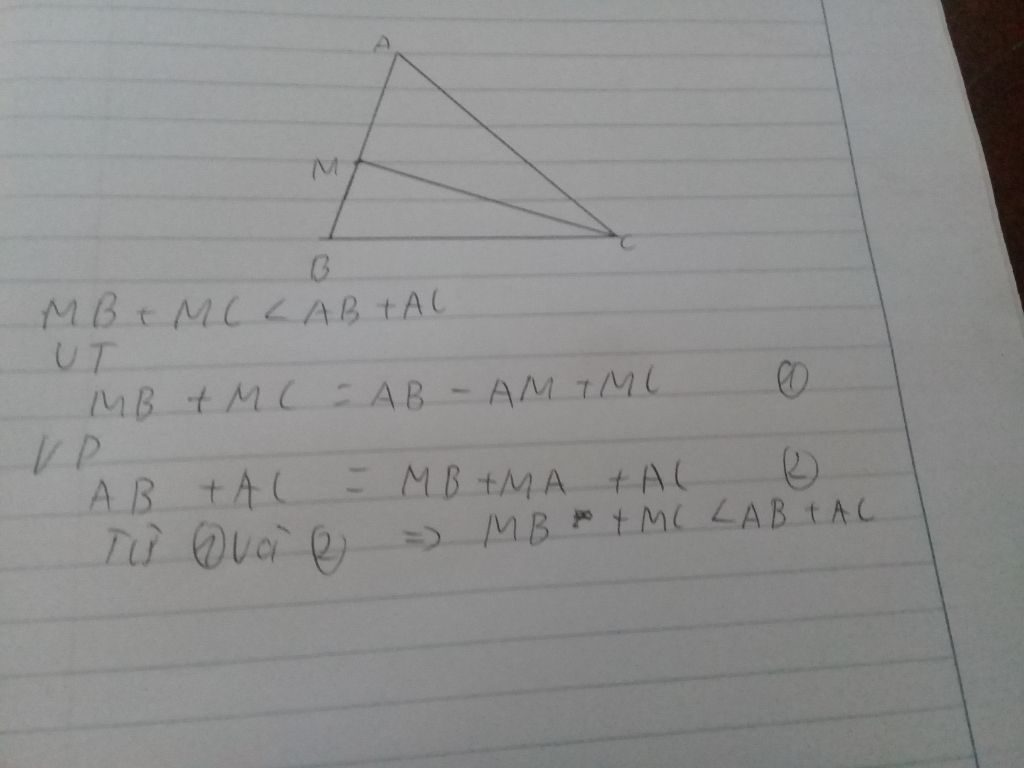 A
M
B
C
MB + MC < AB + AC
VT
MB + MC = AB - AM + MC ①
VP
AB + AC = MB + MA + AC ②
Từ ① và ② => MB + MC < AB + AC